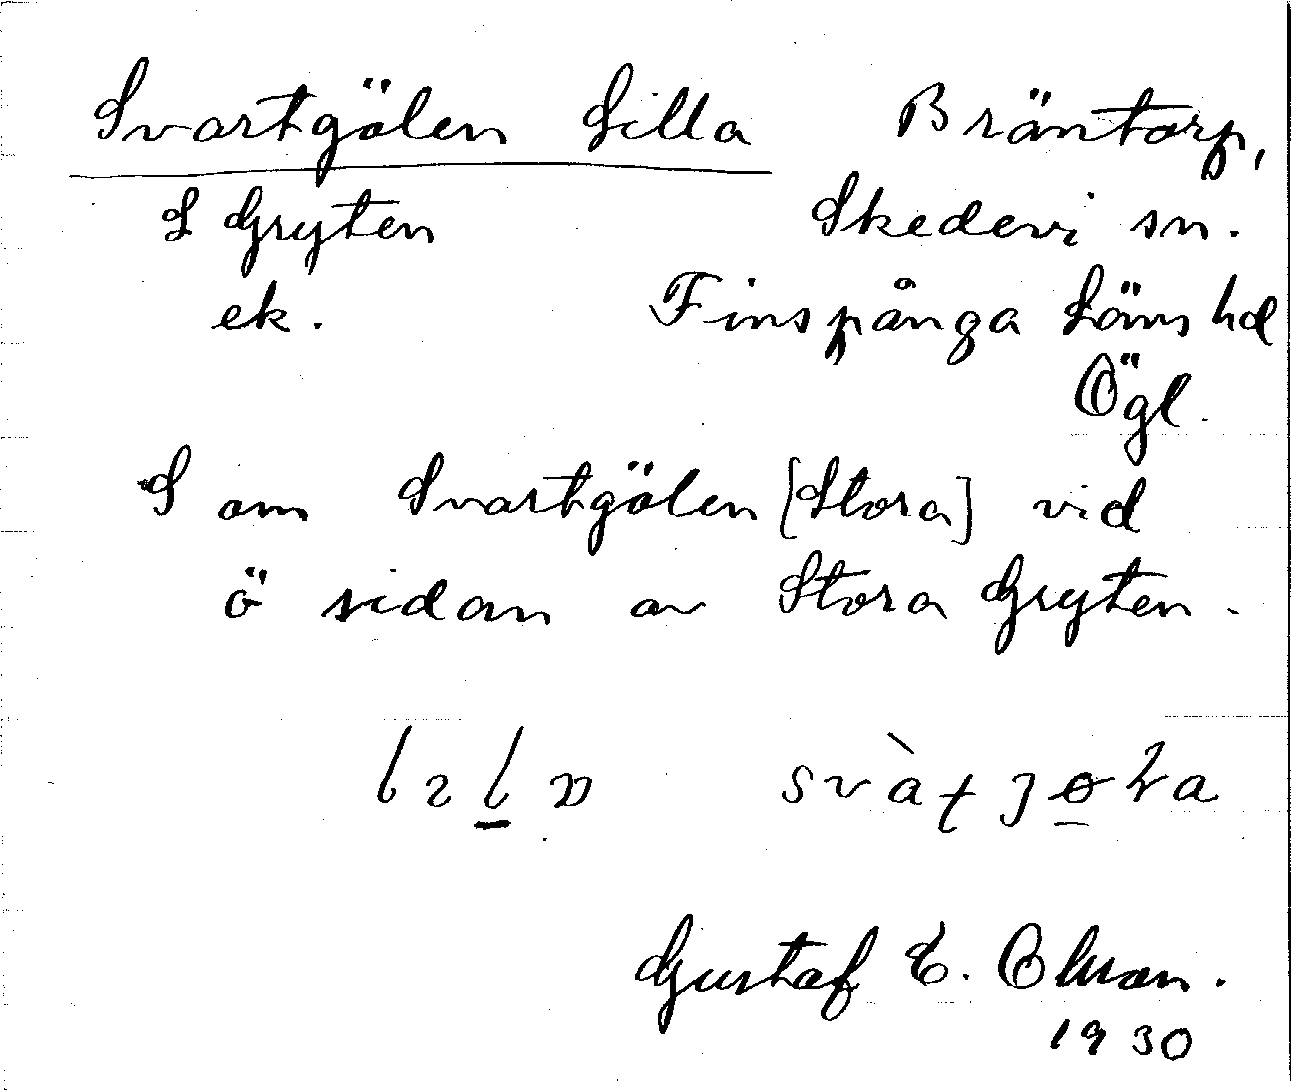 Svartgölen Lilla Bräntorp,
S Gryten Skedevi sn.
ek. Finspånga Läns hd
Ögl.
S om Svartgölen [Stora] vid
ö sidan av Stora Gryten.
Gustaf E. Olsson.
1930